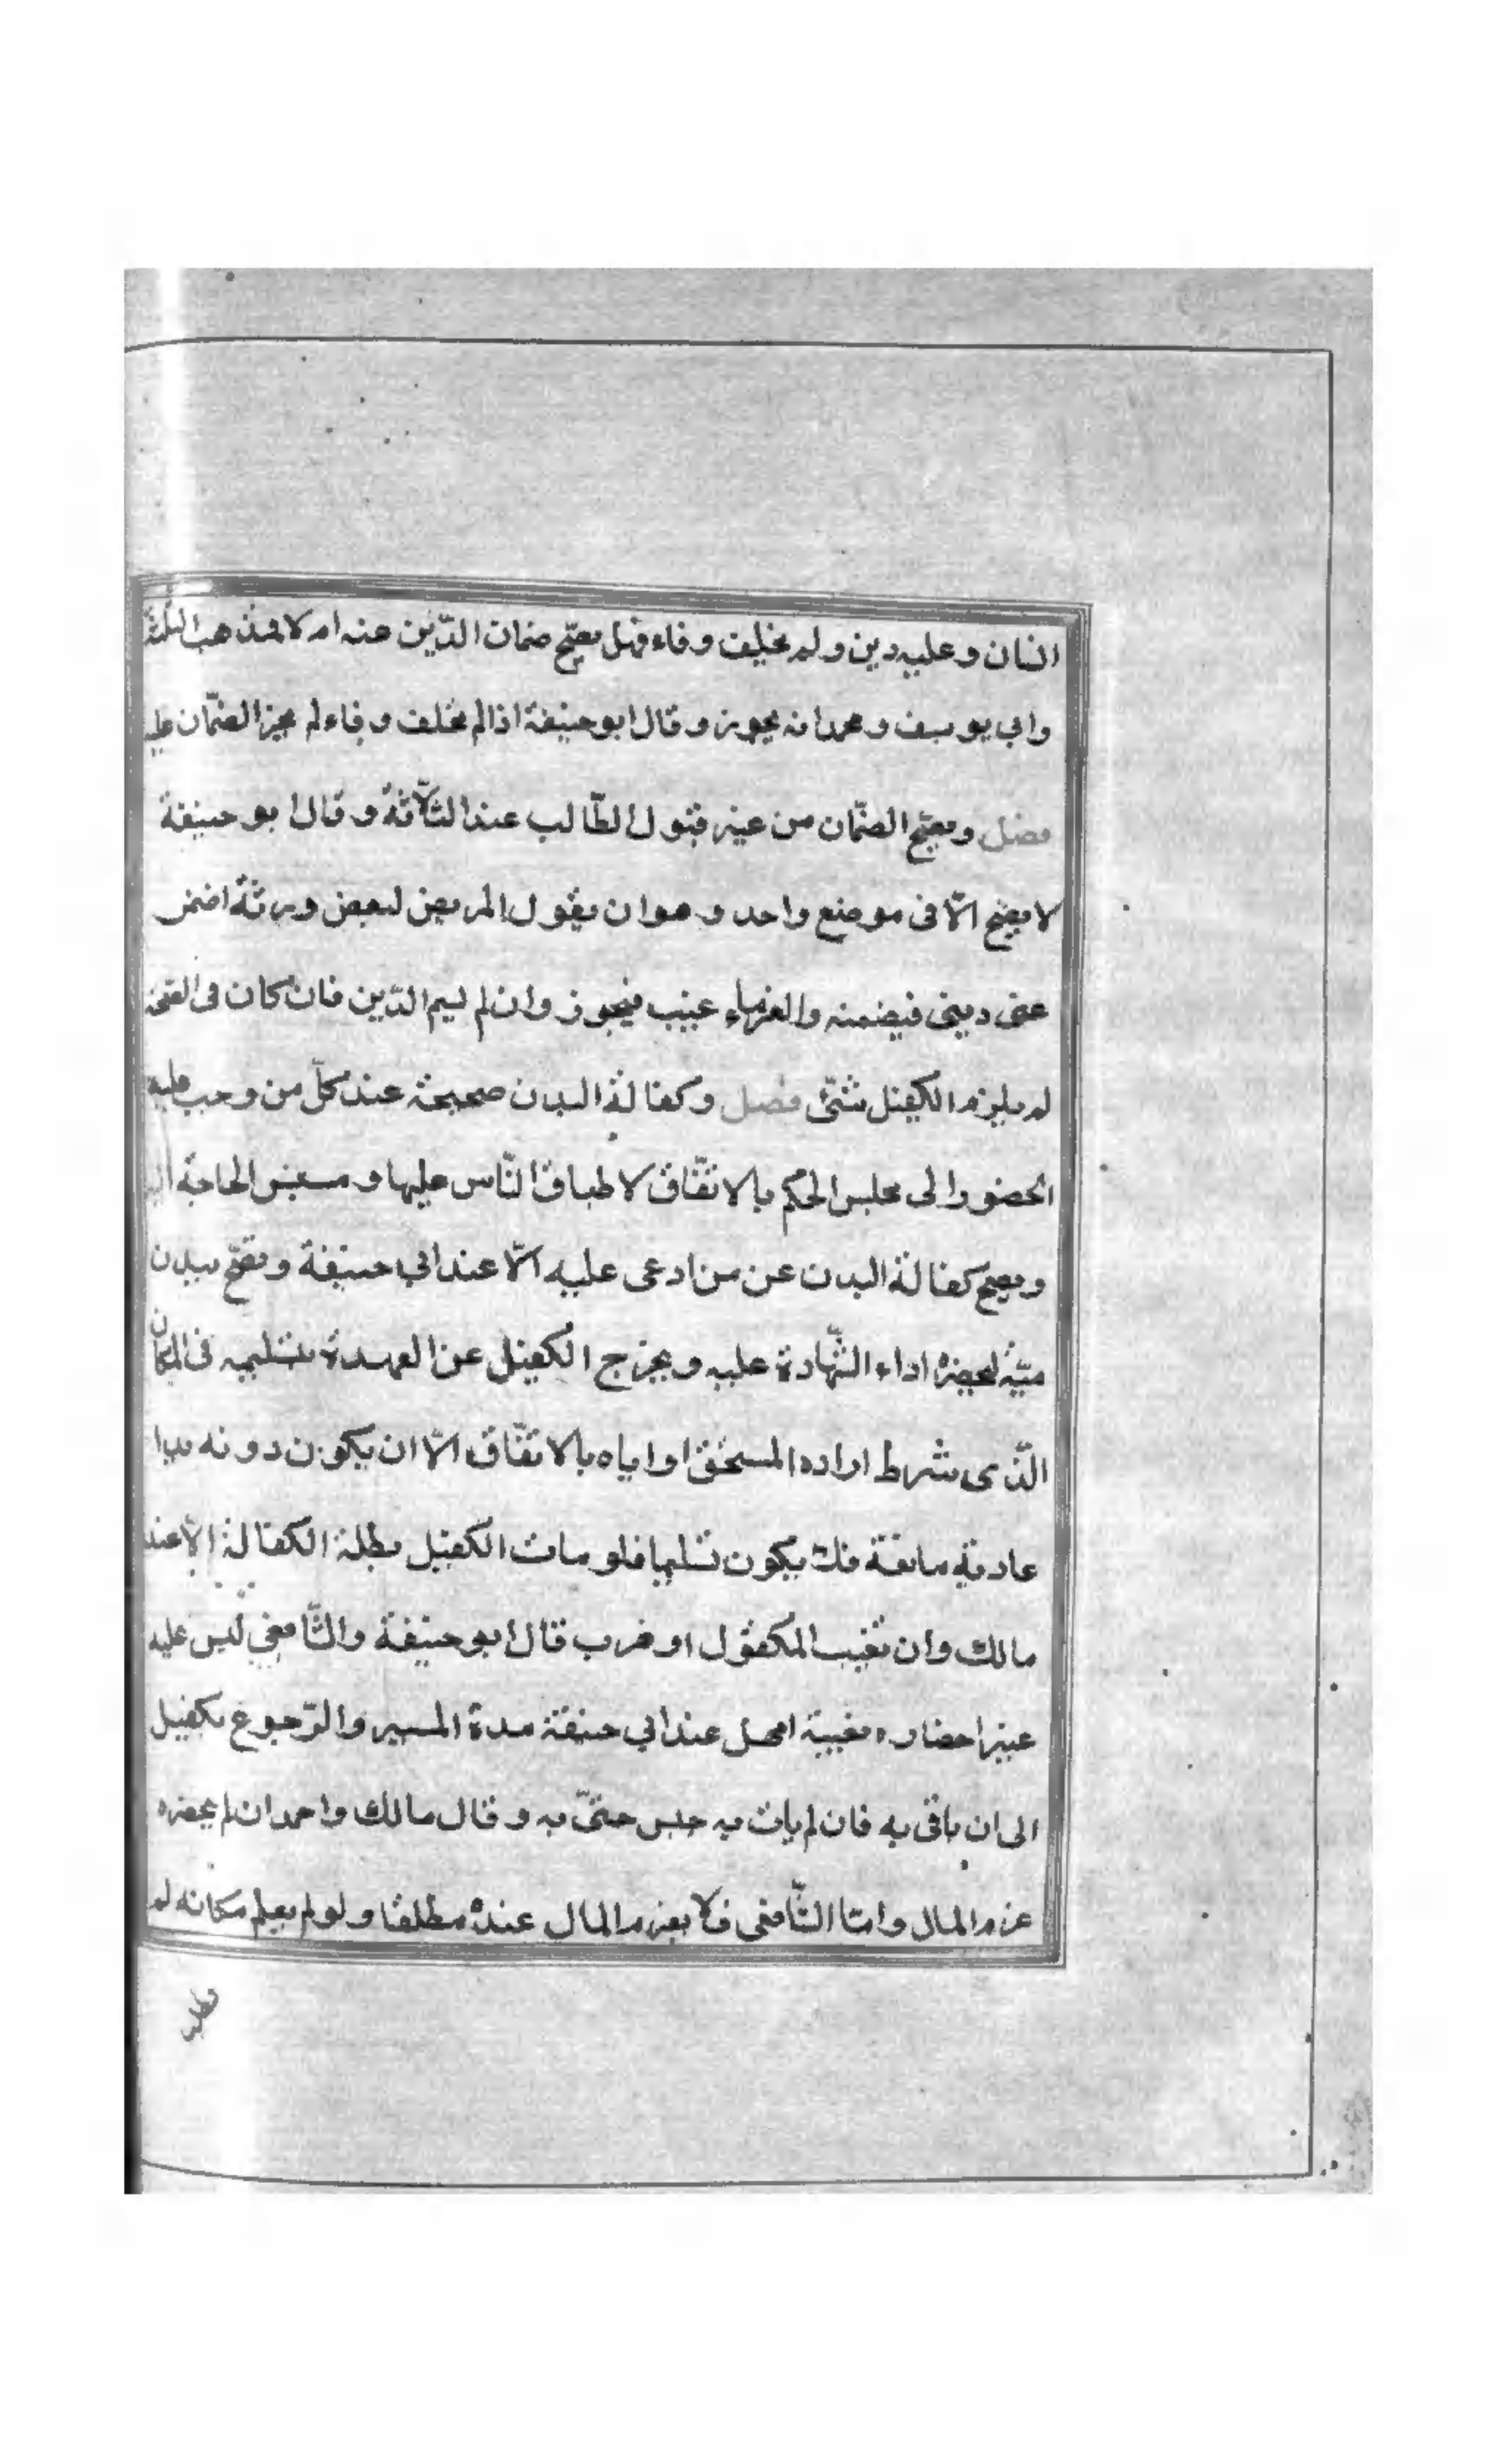 انسان وعليه دين ولم يخلف وفاء فهل يصح ضمان الدّين عنه ام لا فمذهب الثلثة
وابي يوسف ومحمد انه يجوز وقال ابو حنيفة اذا لم يخلف وفاء لم يجز الضمّان عليه
فصل ويصحّ الضمّان من غير قبول الطّالب عند الثلاثة وقال ابو حنيفة
لا يصح الّا فى موضع واحد وهو ان يقول المريض لبعض ورثته اضمن
عنى دينى فيضمنه والغرماء غيب فيجوز وان لم يسم الدّين فان كان فى الصحة
لم يلزم الكفيل شئ فصل وكفالة البدن صحيحة عند كلّ من وجب عليه
الحضور الى مجلس الحكم بالاتفّاق لاطباق النّاس عليها ومسيس الحاجة اليها
ويصح كفالة البدن عن من ادعى عليه الّا عند ابي حنيفة وتصحّ ببدن
ميّت ليحضره اداء الشّهادة عليه ويخرج الكفيل عن العهدة بتسليمه فى المكان
الّذى شرط اراده المستحق او اباه بالاتفّاق الّا ان يكون دونه يدا
عادية مانعة فلا يكون تسليما فلو مات الكفيل بطلة الكفالة الّا عند
مالك وان تغيب المكفول او هرب قال ابو حنيفة والشّافعي ليس عليه
غير احضاره بغيبية امهل عند ابي حنيفة مدة المسير والرّجوع بكفيل
الى ان ياتى به فان لم يات به حبس حتىّ به وقال مالك واحمد ان لم يحضره
غرم المال وامّا الشّافعى فلا يغرم المال عنده مطلقا ولو لم يعلم مكانه لم